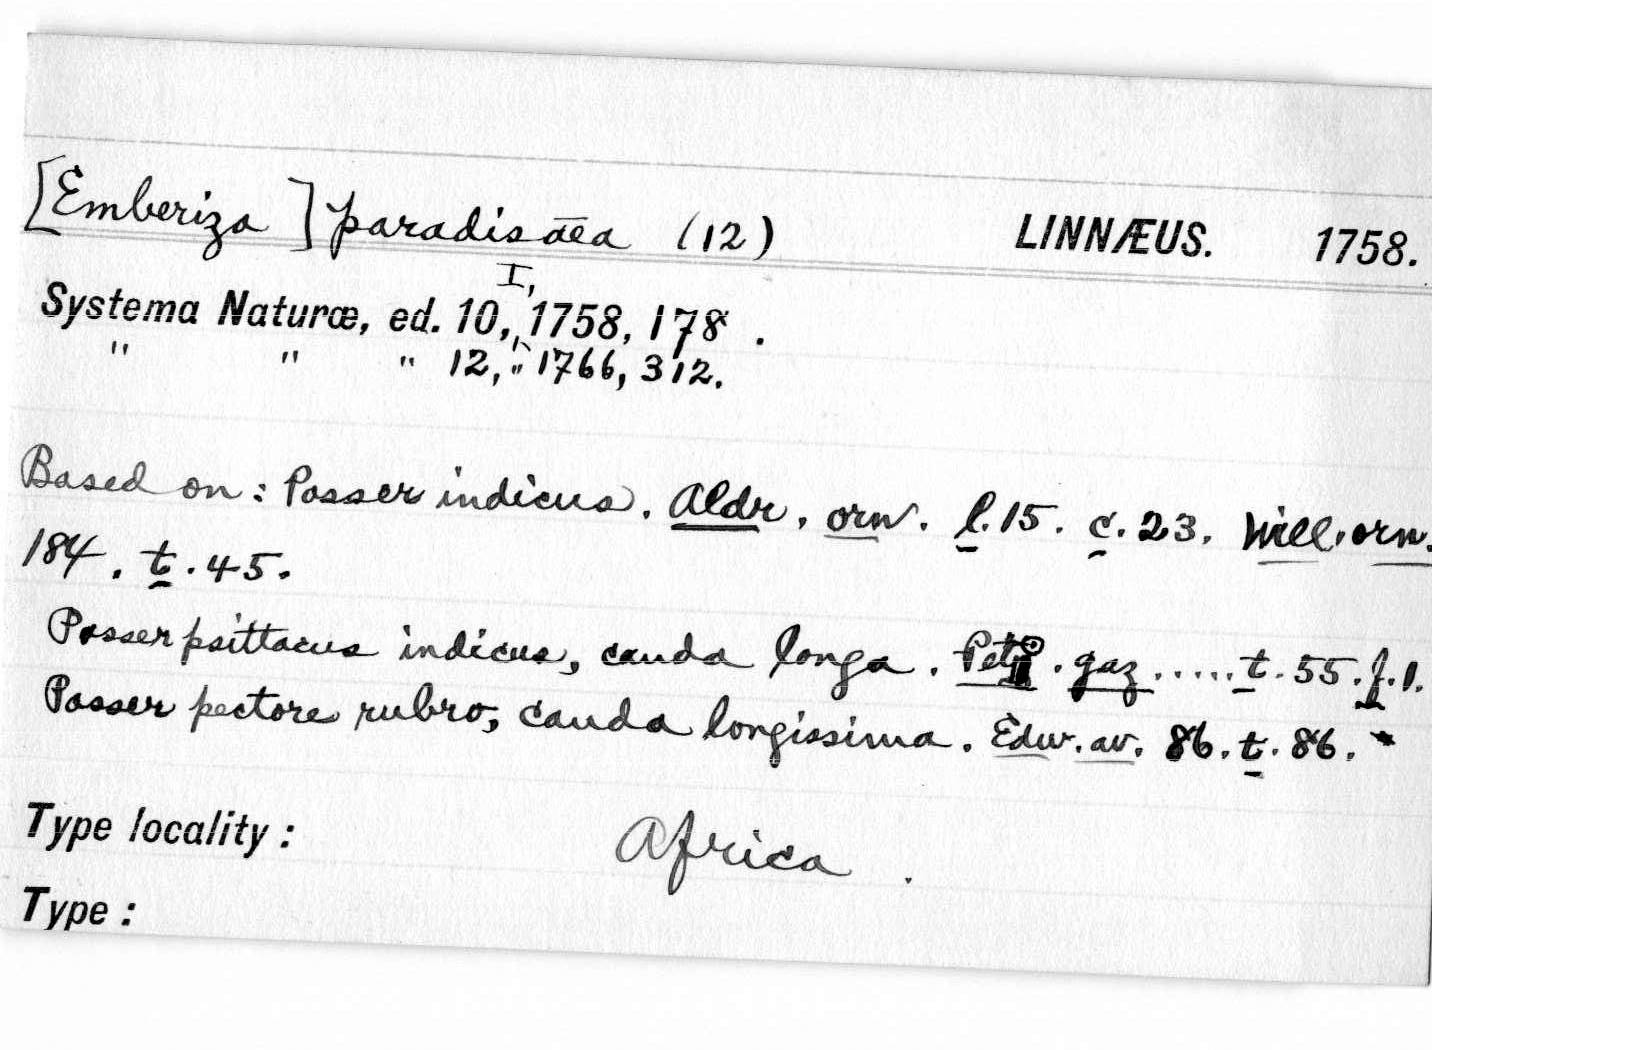 [Emberiza] paradisāea (12) LINNÆUS. 1758.
I,
Systema Naturæ, ed. 10, 1758, 178.
" " " 12, " 1766, 312.
Based on: Passer indicus. Aldr. orn. l. 15. c. 23. Will. orn.
184. t. 45.
Passer psittacus indicus, cauda longa. Pet. gaz ..... t. 55. f. 1.
Passer pectore rubro, cauda longissima. Edw. av. 86. t. 86. *
Type locality: Africa.
Type: